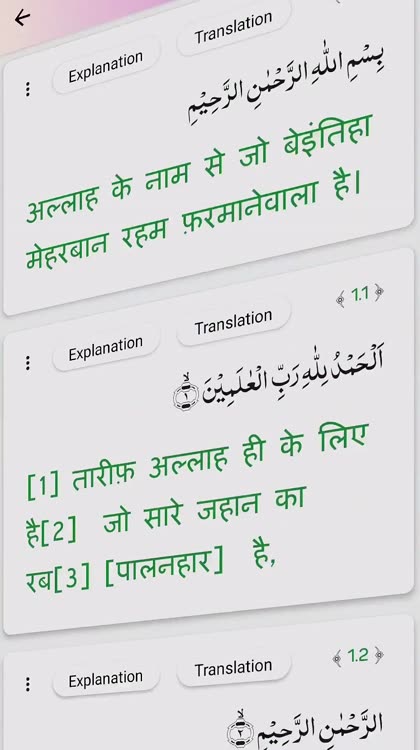 Explanation Translation
بِسْمِ اللّٰهِ الرَّحْمٰنِ الرَّحِيْمِ
अल्लाह के नाम से जो बेइंतिहा
मेहरबान रहम फ़रमानेवाला है।
1.1
Explanation Translation
اَلْحَمْدُ لِلّٰهِ رَبِّ الْعٰلَمِيْنَ ۙ﴿۱﴾
[1] तारीफ़ अल्लाह ही के लिए
है[2] जो सारे जहान का
रब[3] [पालनहार] है,
1.2
Explanation Translation
الرَّحْمٰنِ الرَّحِيْمِ ۙ﴿۲﴾